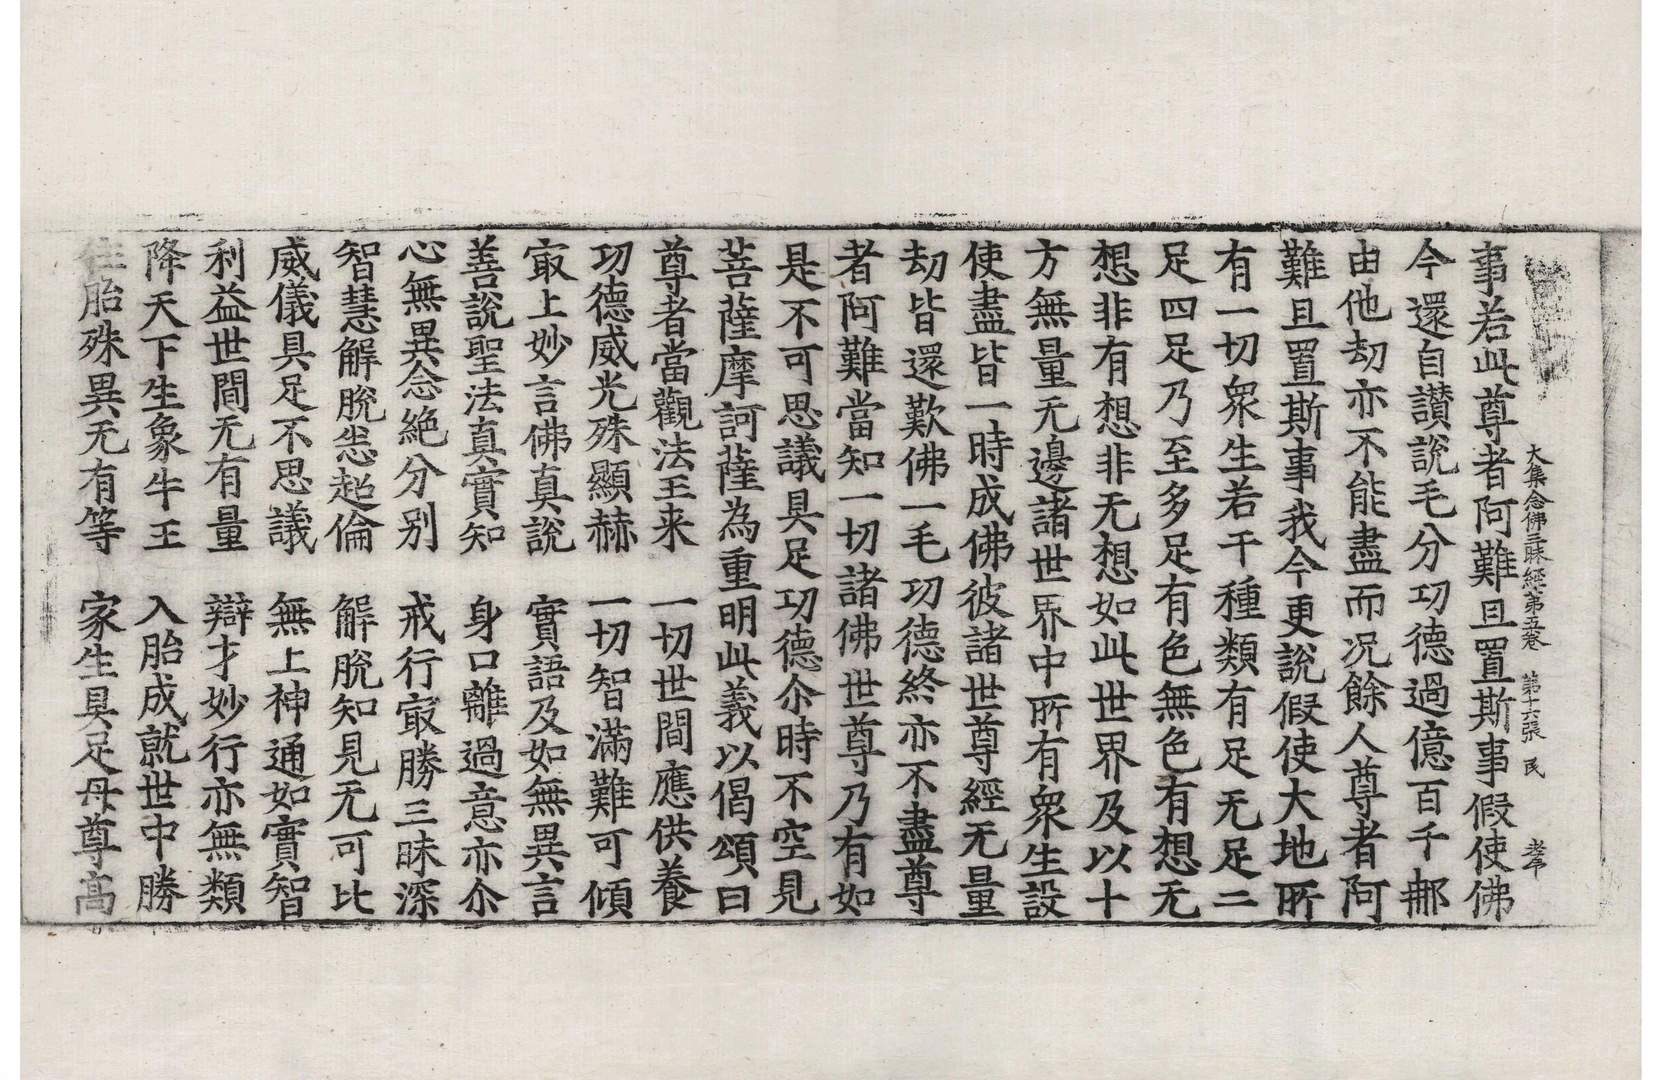 大集念佛三昧經第五卷 第十六張 民
事若此尊者阿難且置斯事假使佛
今還自讃說毛分功德過億百千那
由他劫亦不能盡而況餘人尊者阿
難且置斯事我今更說假使大地所
有一切衆生若干種類有足无足二
足四足乃至多足有色無色有想无
想非有想非无想如此世界及以十
方無量无邊諸世界中所有衆生設
使盡皆一時成佛彼諸世尊經无量
劫皆還歎佛一毛功德終亦不盡尊
者阿難當知一切諸佛世尊乃有如
是不可思議具足功德尒時不空見
菩薩摩訶薩為重明此義以偈頌曰
尊者當觀法王来 一切世間應供養
功德威光殊顯赫 一切智滿難可傾
㝡上妙言佛真說 實語及如無異言
善說聖法真實知 身口離過意亦尒
心無異念絶分別 戒行㝡勝三昧深
智慧解脫悉超倫 解脫知見无可比
威儀具足不思議 無上神通如實智
利益世間无有量 辯才妙行亦無類
降天下生象牛王 入胎成就世中勝
住胎殊異无有等 家生具足母尊高